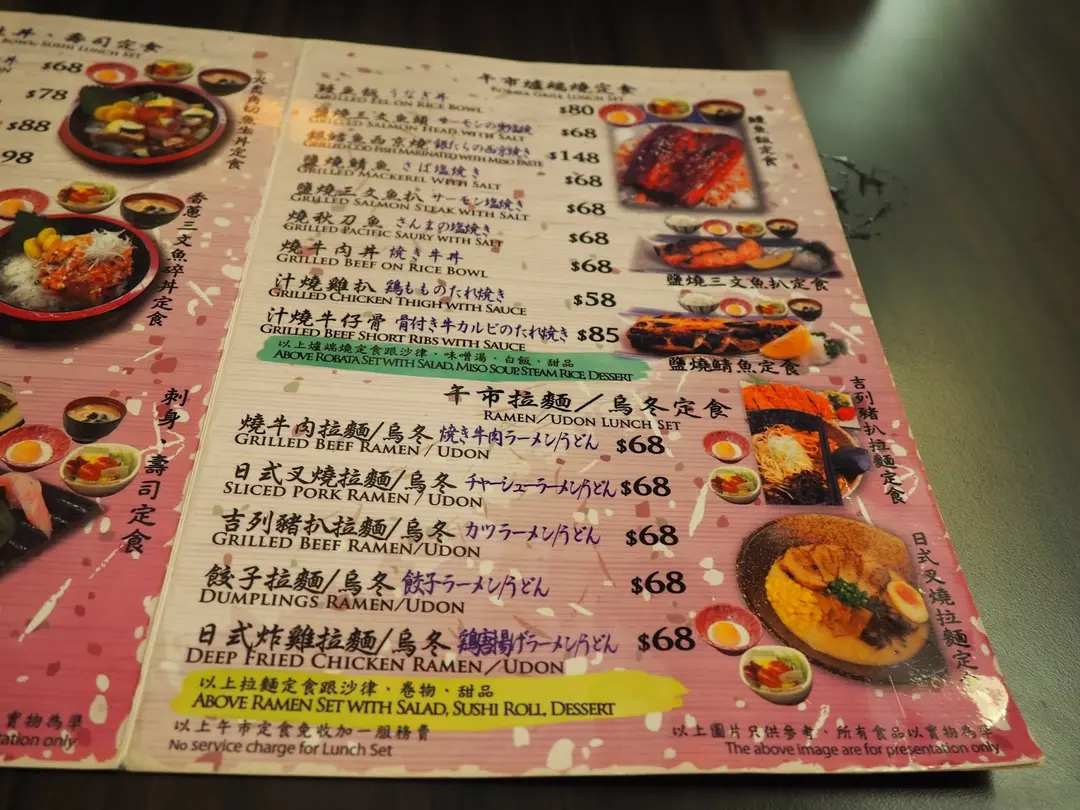 丼、壽司定食
BOWL/SUSHI LUNCH SET
$68
$78
$88
98
火炙角切魚生丼定食
香蔥三文魚碎丼定食
刺身、壽司定食
實物為準
tation only
午市爐端燒定食
ROBATA GRILL LUNCH SET
鰻魚飯 うなぎ丼
GRILLED EEL ON RICE BOWL
$80
鹽燒三文魚頭 サーモンの
GRILLED SALMON HEAD WITH SALT
$68
銀鱈魚西京燒 銀だらの西京焼き
GRILLED COD FISH MARINATED WITH MISO PASTE
$148
鹽燒鯖魚 さば塩焼き
GRILLED MACKEREL WITH SALT
$68
鹽燒三文魚扒 サーモン塩焼き
GRILLED SALMON STEAK WITH SALT
$68
燒秋刀魚 さんまの塩焼き
GRILLED PACIFIC SAURY WITH SALT
$68
燒牛肉丼 焼き牛丼
GRILLED BEEF ON RICE BOWL
$68
汁燒雞扒 鶏もものたれ焼き
GRILLED CHICKEN THIGH WITH SAUCE
$58
汁燒牛仔骨 骨付き牛カルビのたれ焼き
GRILLED BEEF SHORT RIBS WITH SAUCE
$85
以上爐端燒定食跟沙律、味噌湯、白飯、甜品
ABOVE ROBATA SET WITH SALAD, MISO SOUP, STEAM RICE, DESSERT
鰻魚飯定食
鹽燒三文魚扒定食
鹽燒鯖魚定食
午市拉麵/烏冬定食
RAMEN/UDON LUNCH SET
燒牛肉拉麵/烏冬 焼き牛肉ラーメン/うどん
GRILLED BEEF RAMEN/UDON
$68
日式叉燒拉麵/烏冬 チャーシューラーメン/うどん
SLICED PORK RAMEN/UDON
$68
吉列豬扒拉麵/烏冬 カツラーメン/うどん
GRILLED BEEF RAMEN/UDON
$68
餃子拉麵/烏冬 餃子ラーメン/うどん
DUMPLINGS RAMEN/UDON
$68
日式炸雞拉麵/烏冬 鶏唐揚げラーメン/うどん
DEEP FRIED CHICKEN RAMEN/UDON
$68
吉列豬扒拉麵定食
日式叉燒拉麵定
以上拉麵定食跟沙律、卷物、甜品
ABOVE RAMEN SET WITH SALAD, SUSHI ROLL, DESSERT
以上午市定食免收加一服務費
No service charge for Lunch Set
以上圖片只供參考，所有食品以實物為準
The above image are for presentation only